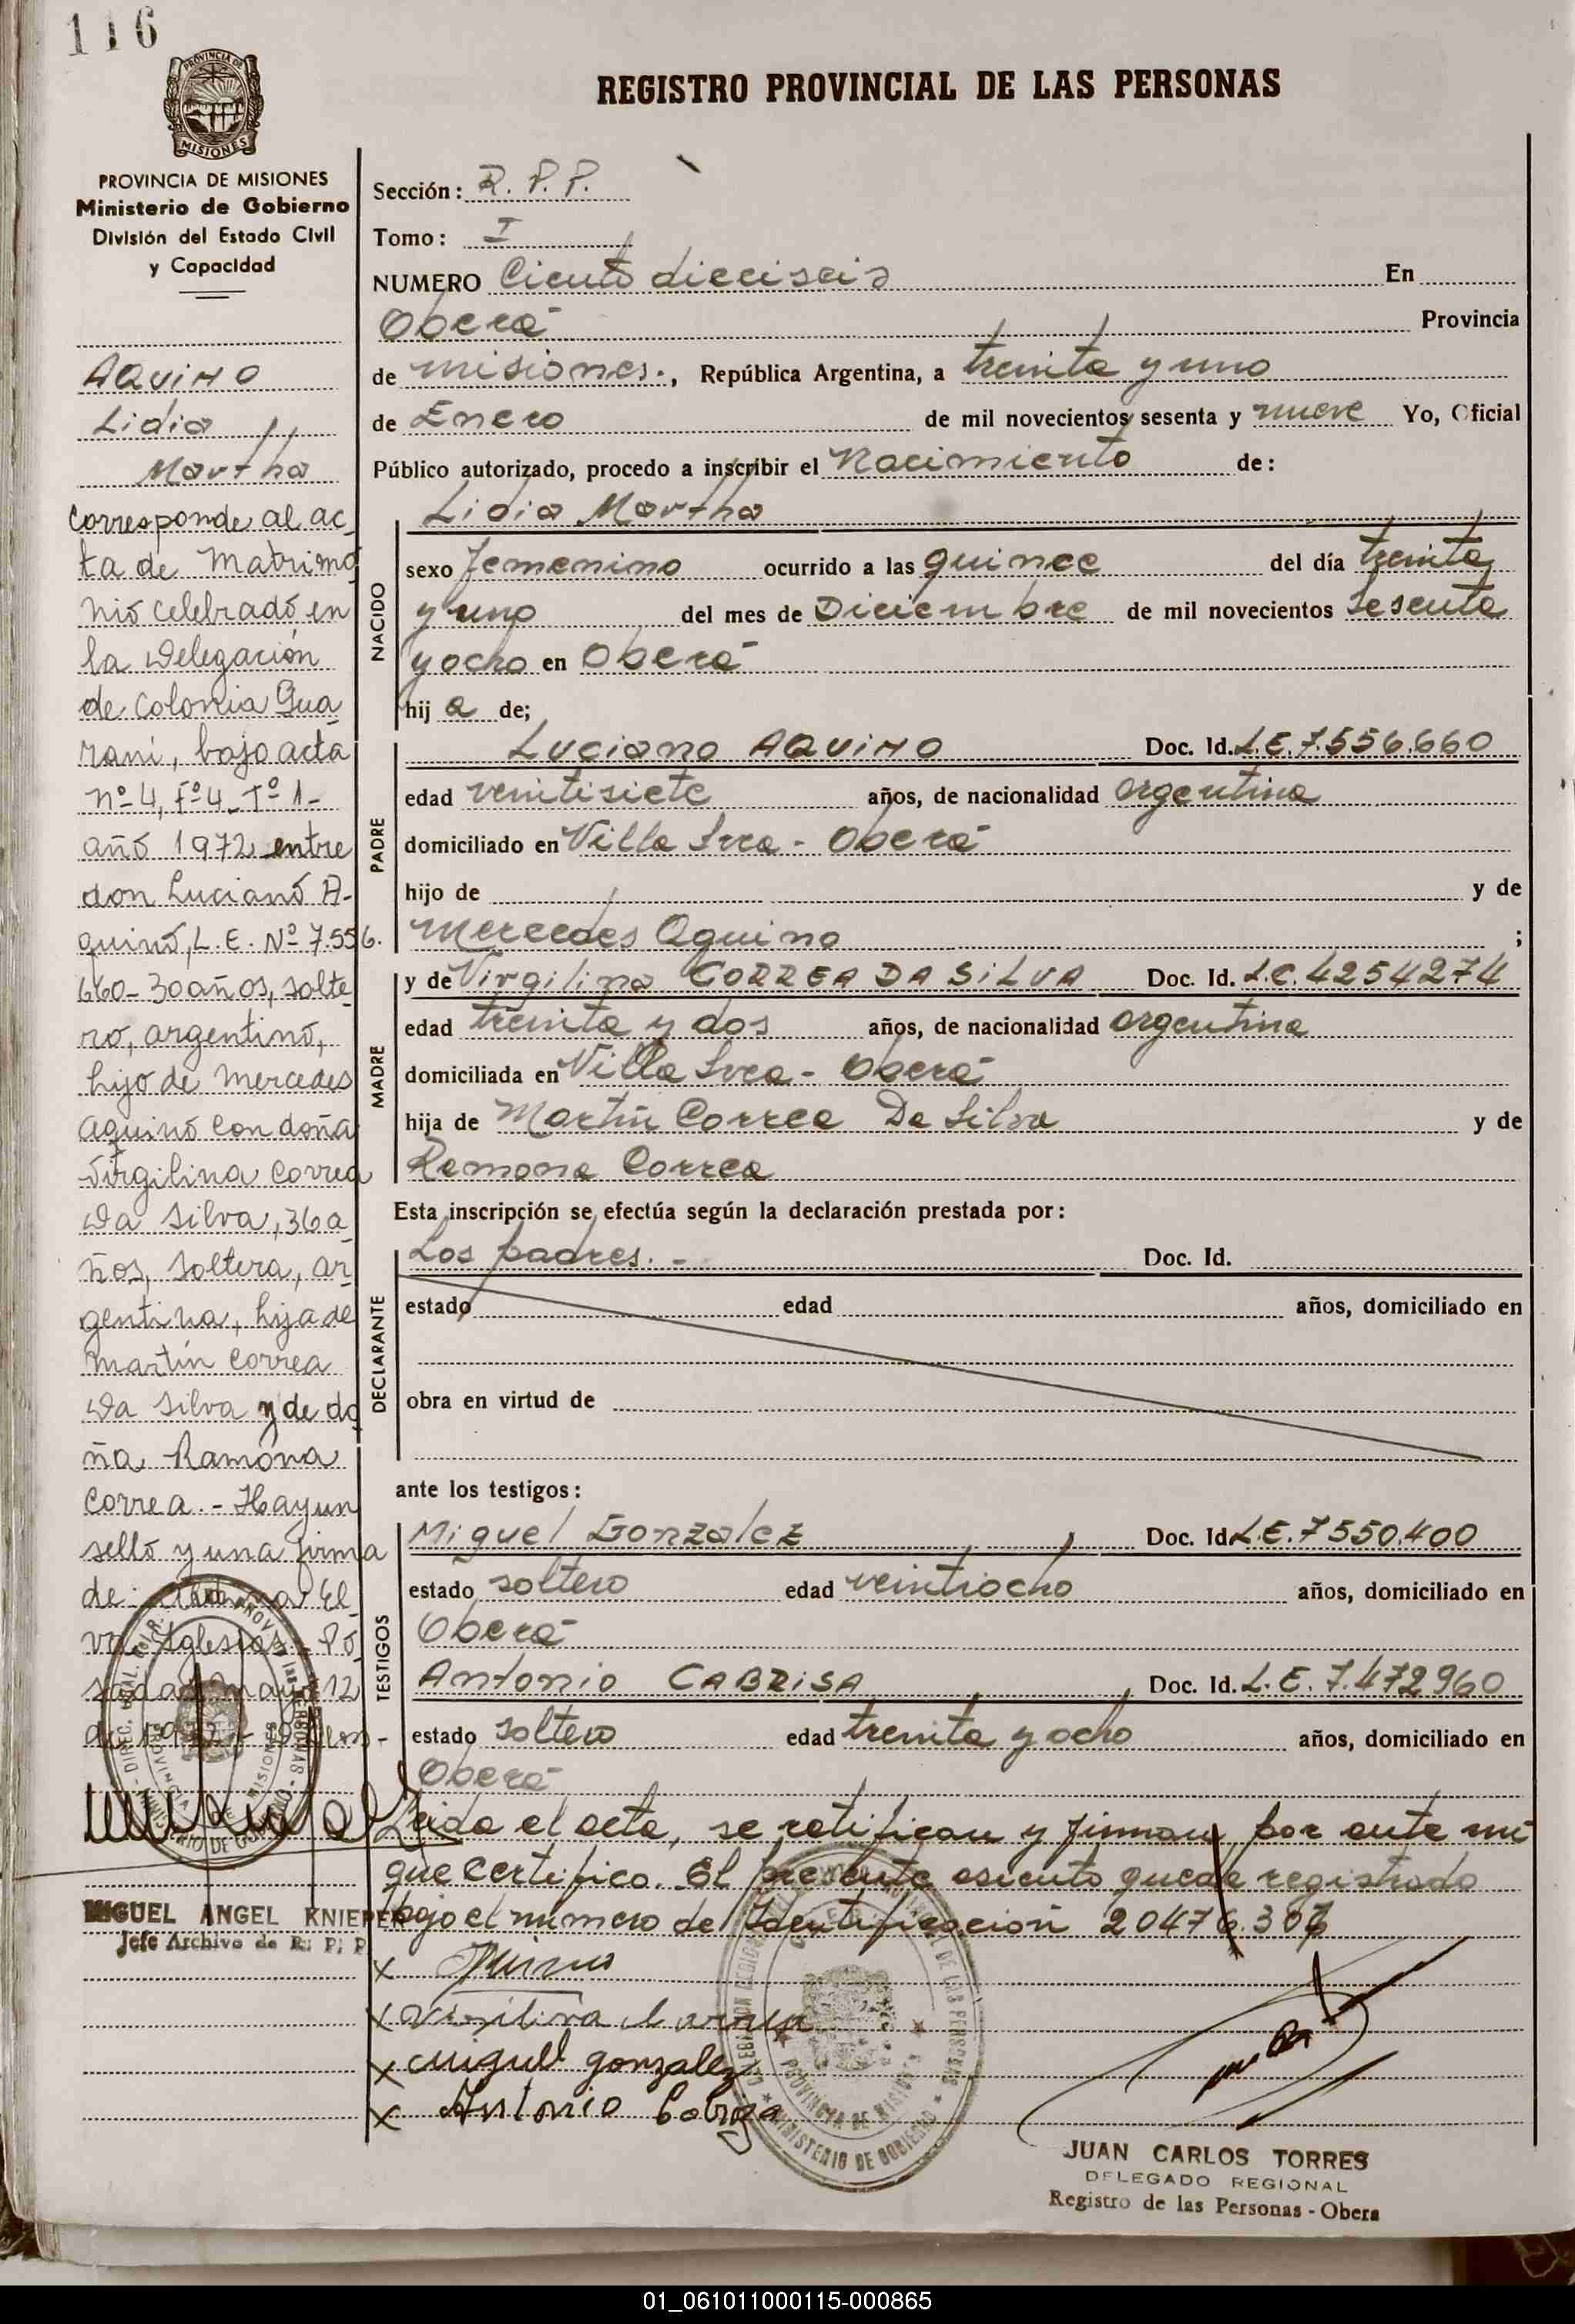 116
REGISTRO PROVINCIAL DE LAS PERSONAS
PROVINCIA DE
MISIONES
PROVINCIA DE MISIONES
Ministerio de Gobierno
División del Estado Civil
y Capacidad
AQUINO
Lidia
Martha
Corresponde al ac
ta de Matrimo
nio celebrado en
la Delegación
de Colonia Gua
raní, bajo acta
nº 4, Fº 4 - Tº 1 -
año 1972 entre
don Luciano A-
quino, L. E. Nº 7.556.
660 - 30 años, solte
ro, argentino,
hijo de Mercedes
Aquino con doña
Virgilina Correa
Da Silva, 36 a
ños, soltera, ar
gentina, hija de
Martín Correa
Da Silva y de do
ña Ramona
Correa. - Hay un
sello y una firma
de: El
va Iglesias - Po
sadas, mayo 12
MIGUEL ANGEL KNIEPER
Jefe Archivo de R. P. P.
Sección: R. P. P.
Tomo: I
NUMERO Ciento dieciseis En
Oberá Provincia
de misiones., República Argentina, a treinta y uno
de Enero de mil novecientos sesenta y nueve Yo, Oficial
Público autorizado, procedo a inscribir el Nacimiento de:
Lidia Martha
NACIDO
sexo femenino ocurrido a las quince del día treinta
y uno del mes de Diciembre de mil novecientos sesenta
y ocho en Oberá
hij a de;
PADRE
Luciano AQUINO Doc. Id. L.E. 7.556.660
edad veintisiete años, de nacionalidad argentina
domiciliado en Villa Svea - Oberá
hijo de y de
Mercedes Aquino ;
MADRE
y de Virgilina CORREA DA SILVA Doc. Id. L.C. 4254274
edad treinta y dos años, de nacionalidad argentina
domiciliada en Villa Svea - Oberá
hija de Martín Correa Da Silva y de
Ramona Correa
Esta inscripción se efectúa según la declaración prestada por:
DECLARANTE
Los padres. - Doc. Id.
estado edad años, domiciliado en
obra en virtud de
ante los testigos:
TESTIGOS
Miguel Gonzalez Doc. Id. L.E. 7550.400
estado soltero edad veintiocho años, domiciliado en
Oberá
Antonio CABRISA Doc. Id. L.E. 7.472960
estado soltero edad treinta y ocho años, domiciliado en
Oberá
Leida el acta, se ratifican y firman por ante mi
que certifico. El presente asiento queda registrado
bajo el número de Identificación 20476.307
x
x
x miguel gonzalez
x Antonio
PROVINCIA DE MISIONES
MINISTERIO DE GOBIERNO
JUAN CARLOS TORRES
DELEGADO REGIONAL
Registro de las Personas - Obera
01_061011000115-000865